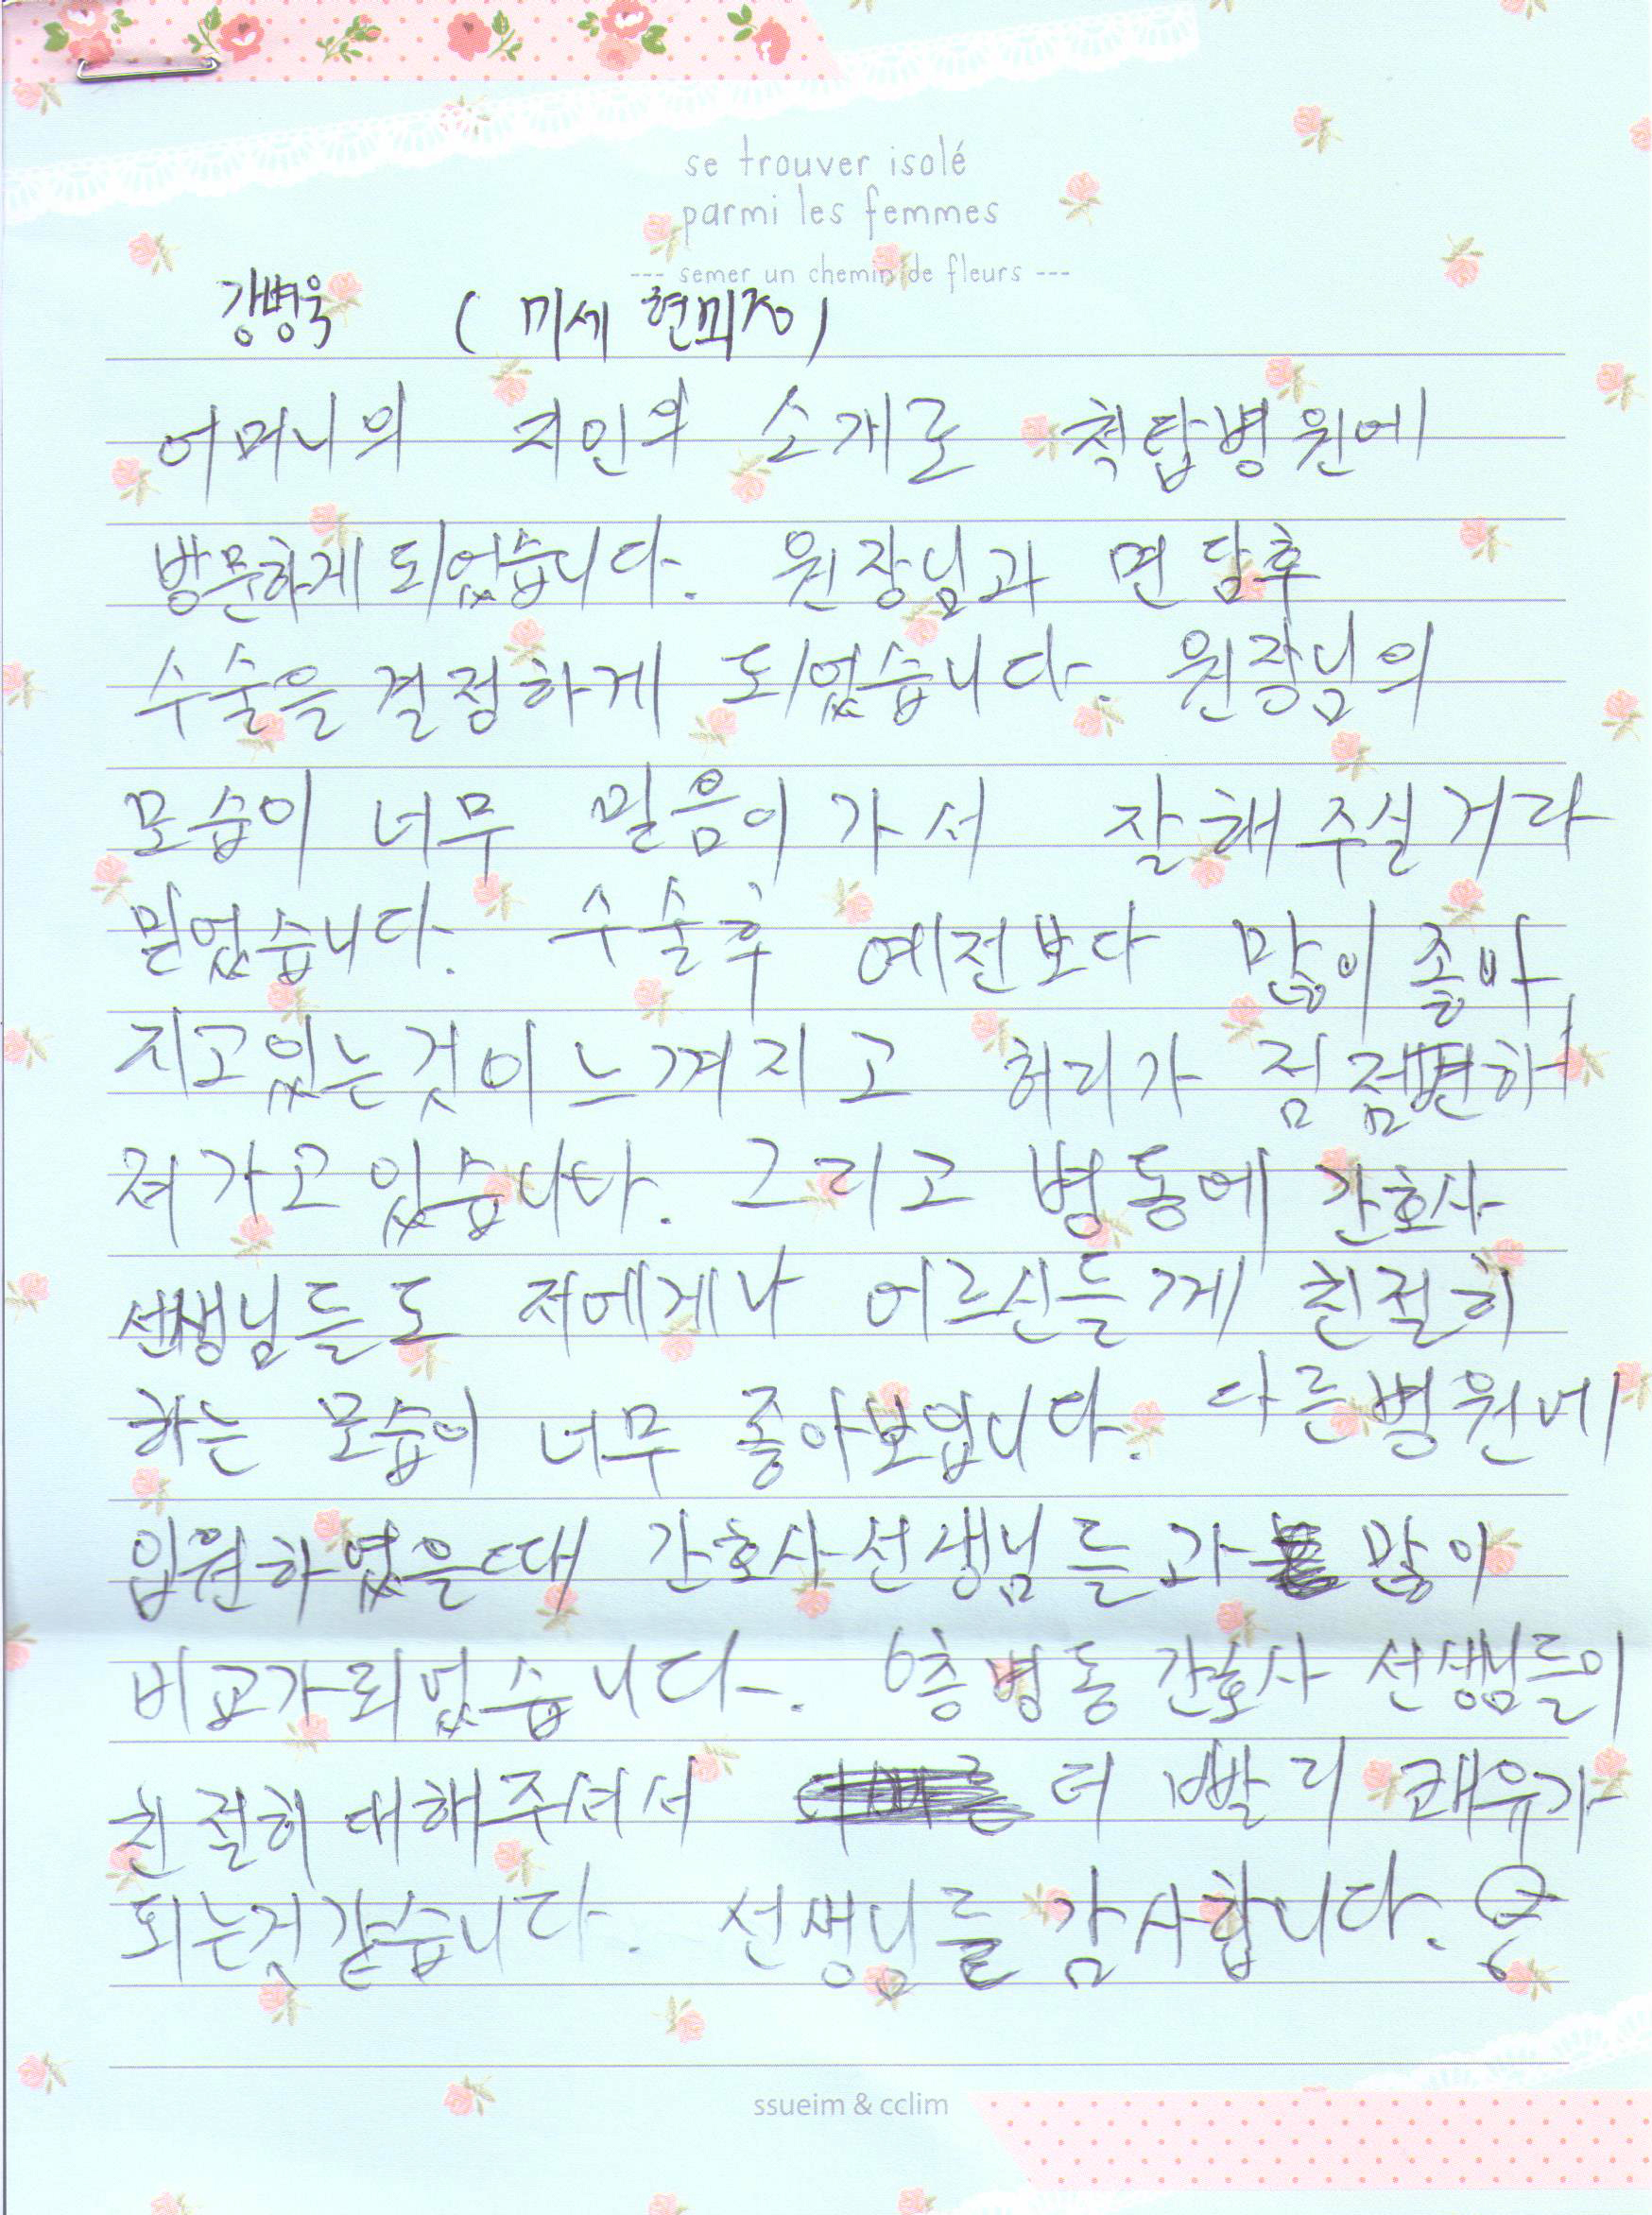 se trouver isolé
parmi les femmes
--- semer un chemin de fleurs ---
강병욱 (미세 현미경)
어머니의 지인의 소개로 척탑병원에
방문하게 되었습니다. 원장님과 면담후
수술을 결정하게 되었습니다. 원장님의
모습이 너무 믿음이 가서 잘해 주실거라
믿었습니다. 수술후 예전보다 많이 좋아
지고있는것이 느껴지고 허리가 점점편하
져가고 있습니다. 그리고 병동에 간호사
선생님들도 저에게나 어르신들께 친절히
하는 모습이 너무 좋아보입니다. 다른병원에
입원하였을때 간호사선생님들과 많이
비교가되었습니다. 6층병동 간호사 선생님들이
친절히 대해주셔서 더 빨리 쾌유가
되는것같습니다. 선생님들 감사합니다.
ssueim & cclim